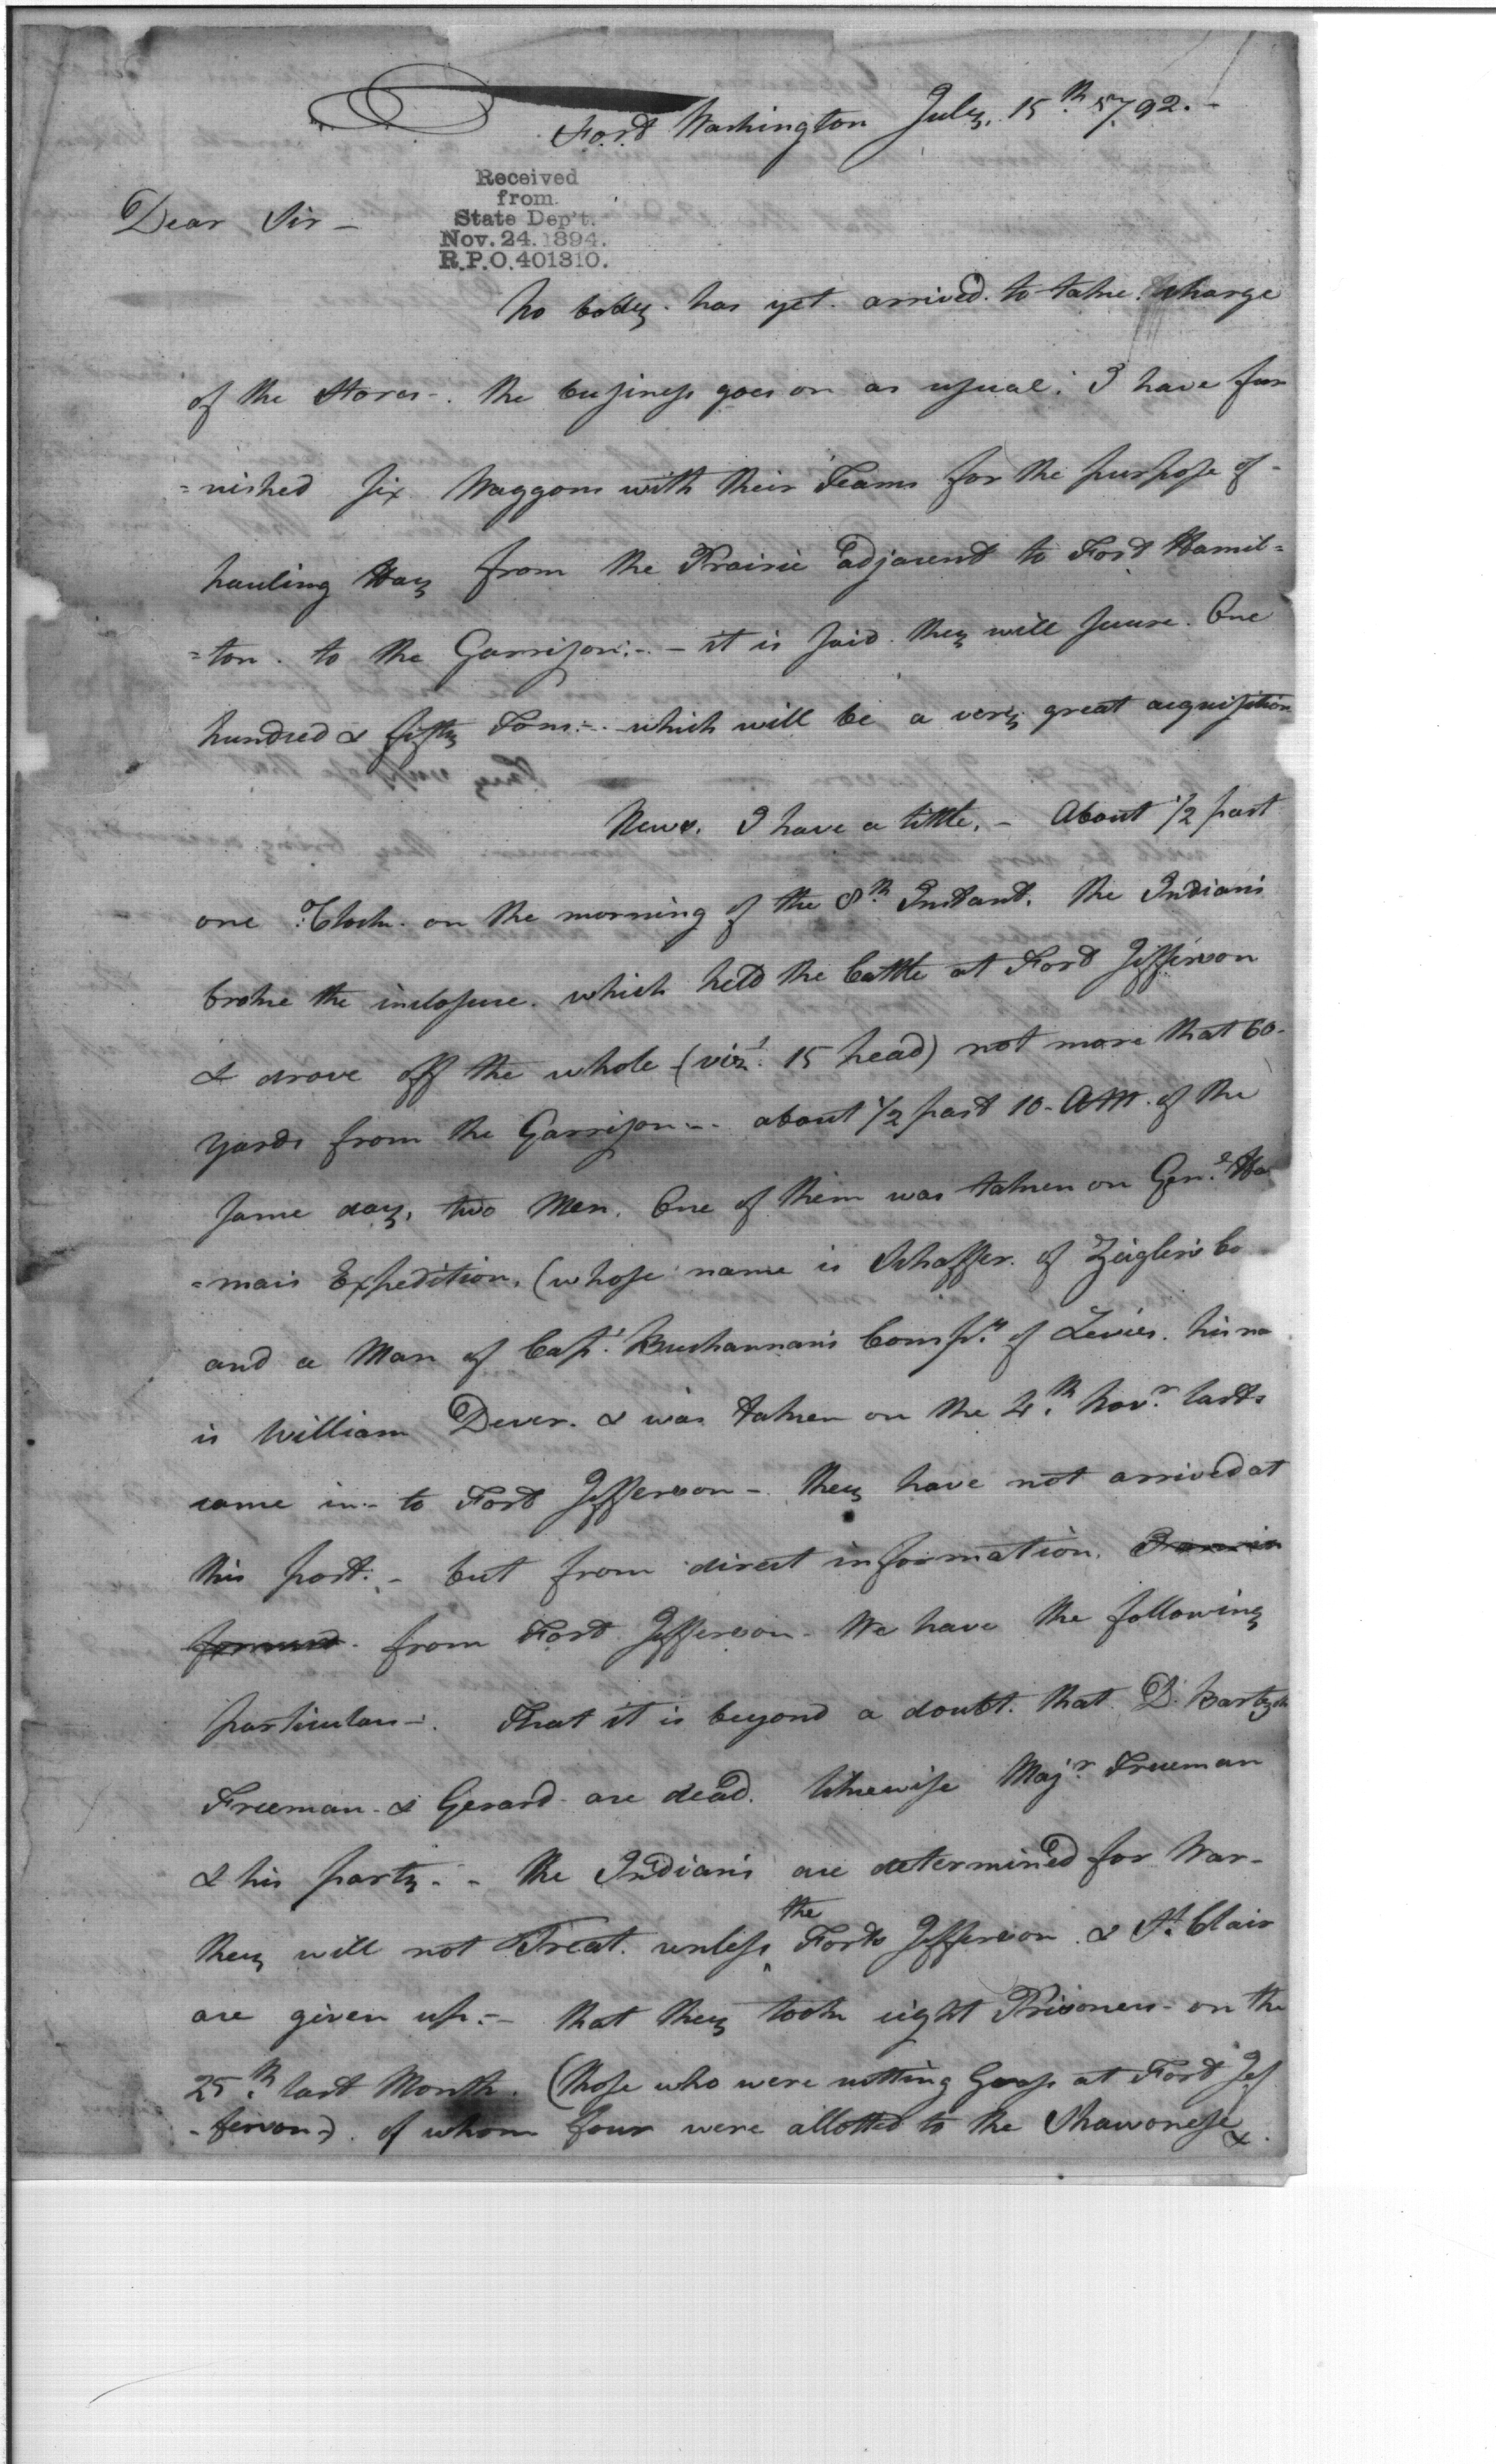 Fort Washington July. 15th 1792.-
Received
from
State Dep't.
Nov. 24. 1894.
R.P.O. 401310.
Dear Sir -
No body has yet arrived to take charge
of the Stores-. the business goes on as usual. I have fur
=nished six Waggons with their Teams for the purpose of-
hauling Hay from the Prairie adjacent to Fort Hamil=
=ton. to the Garrison.- - it is said they will secure One
hundred & fifty Tons.-- which will be a very great acquisition
News. I have a little. - About 1/2 past
one oClock on the morning of the 8th Instant. the Indians
broke the inclosure. which held the Cattle at Fort Jefferson
& drove off the whole (vizt. 15 head) not more that 60-
yards from the Garrison-. about 1/2 past 10- AM. of the
same day, two Men. One of them was taken on Genl. Ha
=mars Expedition, (whose name is Schaffer. of Zeiglers Co
and a Man of Capt. Buchannans Compy. of Levies. his na
is William Dever. & was taken on the 4th. Novr. last.
came in- to Fort Jefferson - they have not arrived at
this post.- but from direct information.
from Fort Jefferson- We have the following
particulars-. That it is beyond a doubt. that D.
Freeman- & Gerard- are dead. likewise Majr. Trueman
& his party-- the Indians are determined for War-
they will not Treat. unless the Forts Jefferson & St. Clair
are given up.- that they took eight Prisoners- on the
25th. last Month. (those who were cutting Grass at Fort Jef
-ferson). of whom four were allotted to the Shawonese &.